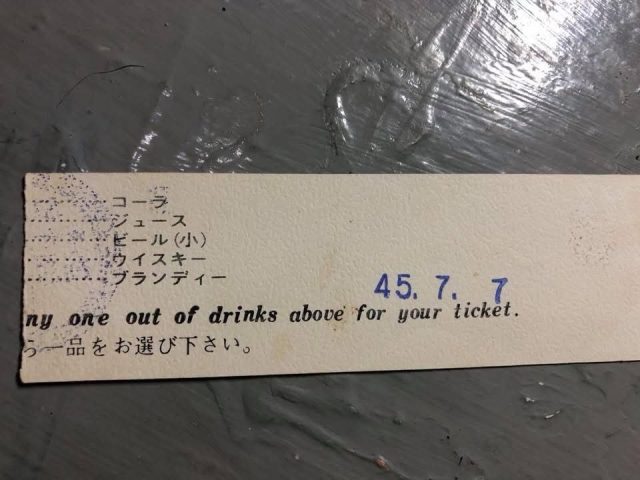 コーラ
ジュース
ビール(小)
ウイスキー
ブランディー
45. 7. 7
ny one out of drinks above for your ticket.
ら一品をお選び下さい。